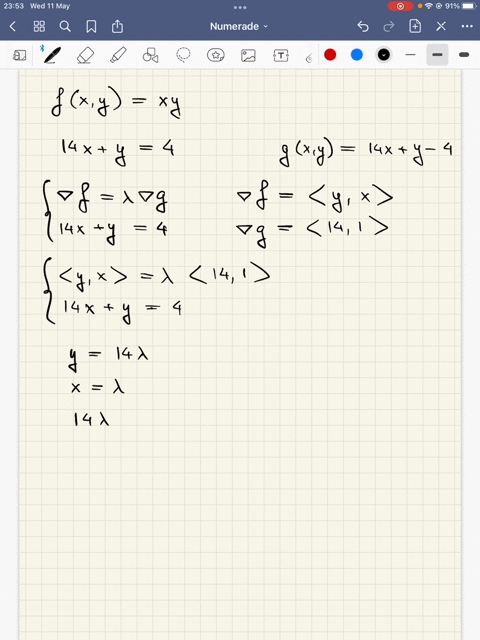 23:53 Wed 11 May 91%
Numerade
T
f(x,y) = xy
14x + y = 4 g(x,y) = 14x + y - 4
∇f = λ∇g ∇f = <y, x>
14x + y = 4 ∇g = <14, 1>
<y, x> = λ <14, 1>
14x + y = 4
y = 14λ
x = λ
14λ